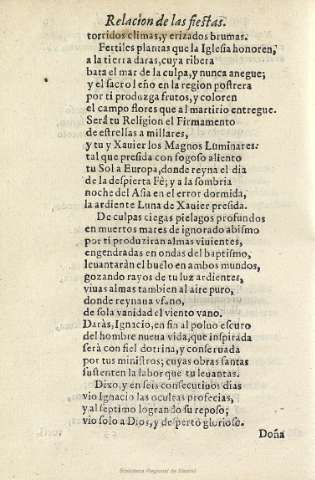 Relacion de las fiestas.
torridos climas, y erizados brumas.
Fertiles plantas que la Iglesia honoren,
a la tierra daras, cuya ribera
bata el mar de la culpa, y nunca anegue;
y el sacro leño en la region postrera
por ti produzga frutos, y coloren
el campo flores que al martirio entregue.
Será tu Religion el Firmamento
de estrellas a millares,
y tu y Xauier los Magnos Luminares:
tal que presida con fogoso aliento
tu Sol a Europa, donde reyna el dia
de la despierta Fè; y a la sombria
noche del Asia en el error dormida,
la ardiente Luna de Xauier presida.
De culpas ciegas pielagos profundos
en muertos mares de ignorado abismo
por ti produziran almas viuientes,
engendradas en ondas del baptismo,
leuantarán el buelo en ambos mundos,
gozando rayos de tu luz ardientes,
viuas almas tambien al aire puro,
donde reynaua vfano,
de sola vanidad el viento vano.
Daràs, Ignacio, en fin al poluo escuro
del hombre nueua vida, que inspirada
serà con fiel dotrina, y conseruada
por tus ministros; cuyas obras santas
sustenten la labor que tu leuantas.
Dixo, y en seis consecutiuos dias
vio Ignacio las ocultas profecias,
y al septimo logrando su reposo;
vio solo a Dios, y despertò glorioso.
Doña
Biblioteca Regional de Madrid